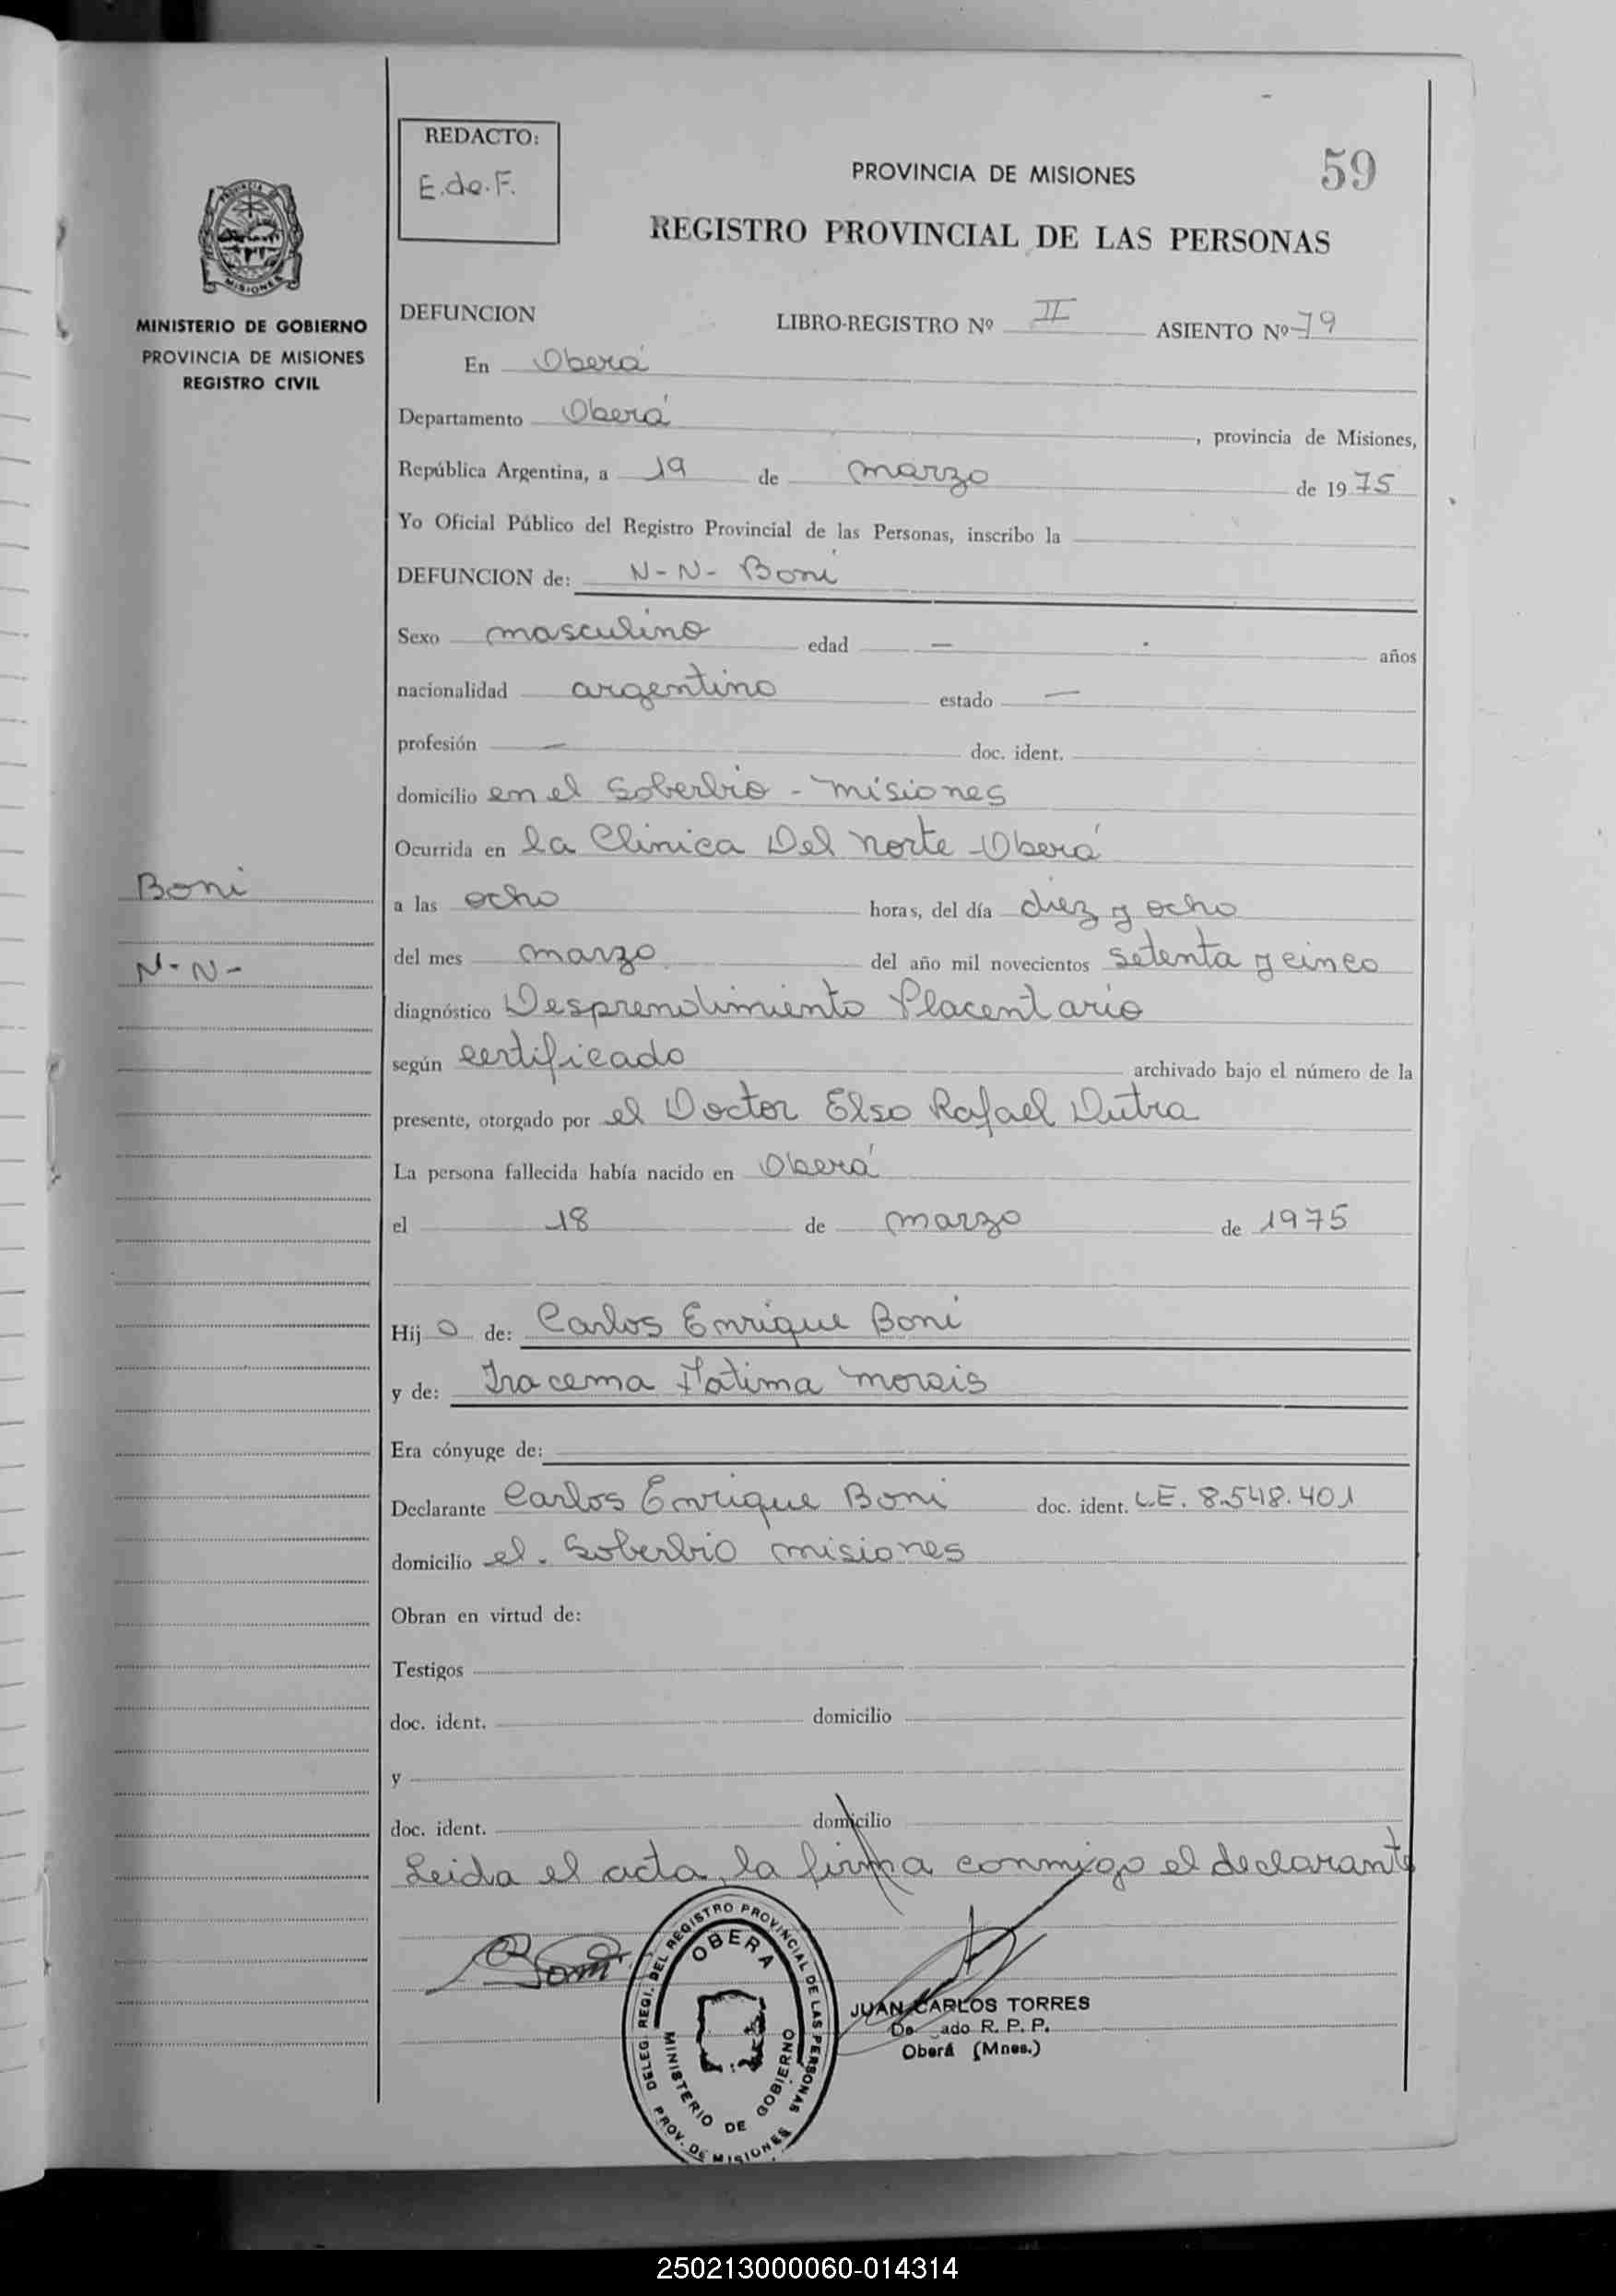 REDACTO:
E.de.F.
PROVINCIA DE MISIONES
59
REGISTRO PROVINCIAL DE LAS PERSONAS
MINISTERIO DE GOBIERNO
PROVINCIA DE MISIONES
REGISTRO CIVIL
DEFUNCION LIBRO-REGISTRO Nº II ASIENTO Nº 79
En Oberá
Departamento Oberá, provincia de Misiones,
República Argentina, a 19 de marzo de 1975
Yo Oficial Público del Registro Provincial de las Personas, inscribo la
DEFUNCION de: N-N- Boni
Sexo masculino edad — años
nacionalidad argentino estado —
profesión — doc. ident.
domicilio en el Soberbio - misiones
Ocurrida en la Clinica Del norte Oberá
Boni
a las ocho horas, del día diez y ocho
N-N-
del mes marzo del año mil novecientos setenta y cinco
diagnóstico Desprendimiento Placentario
según certificado archivado bajo el número de la
presente, otorgado por el Doctor Elso Rafael Dutra
La persona fallecida había nacido en Oberá
el 18 de marzo de 1975
Hijo de: Carlos Enrique Boni
y de: Iracema Fatima morais
Era cónyuge de:
Declarante Carlos Enrique Boni doc. ident. L.E. 8.548.401
domicilio el. Soberbio misiones
Obran en virtud de:
Testigos
doc. ident. domicilio
y
doc. ident. domicilio
Leida el acta, la firma conmigo el declarante
Boni
DELEG. REGI. DEL REGISTRO PROVINCIAL DE LAS PERSONAS
OBERA
MINISTERIO DE GOBIERNO
PROV. DE MISIONES
JUAN CARLOS TORRES
De ado R. P. P.
Oberá (Mnes.)
250213000060-014314